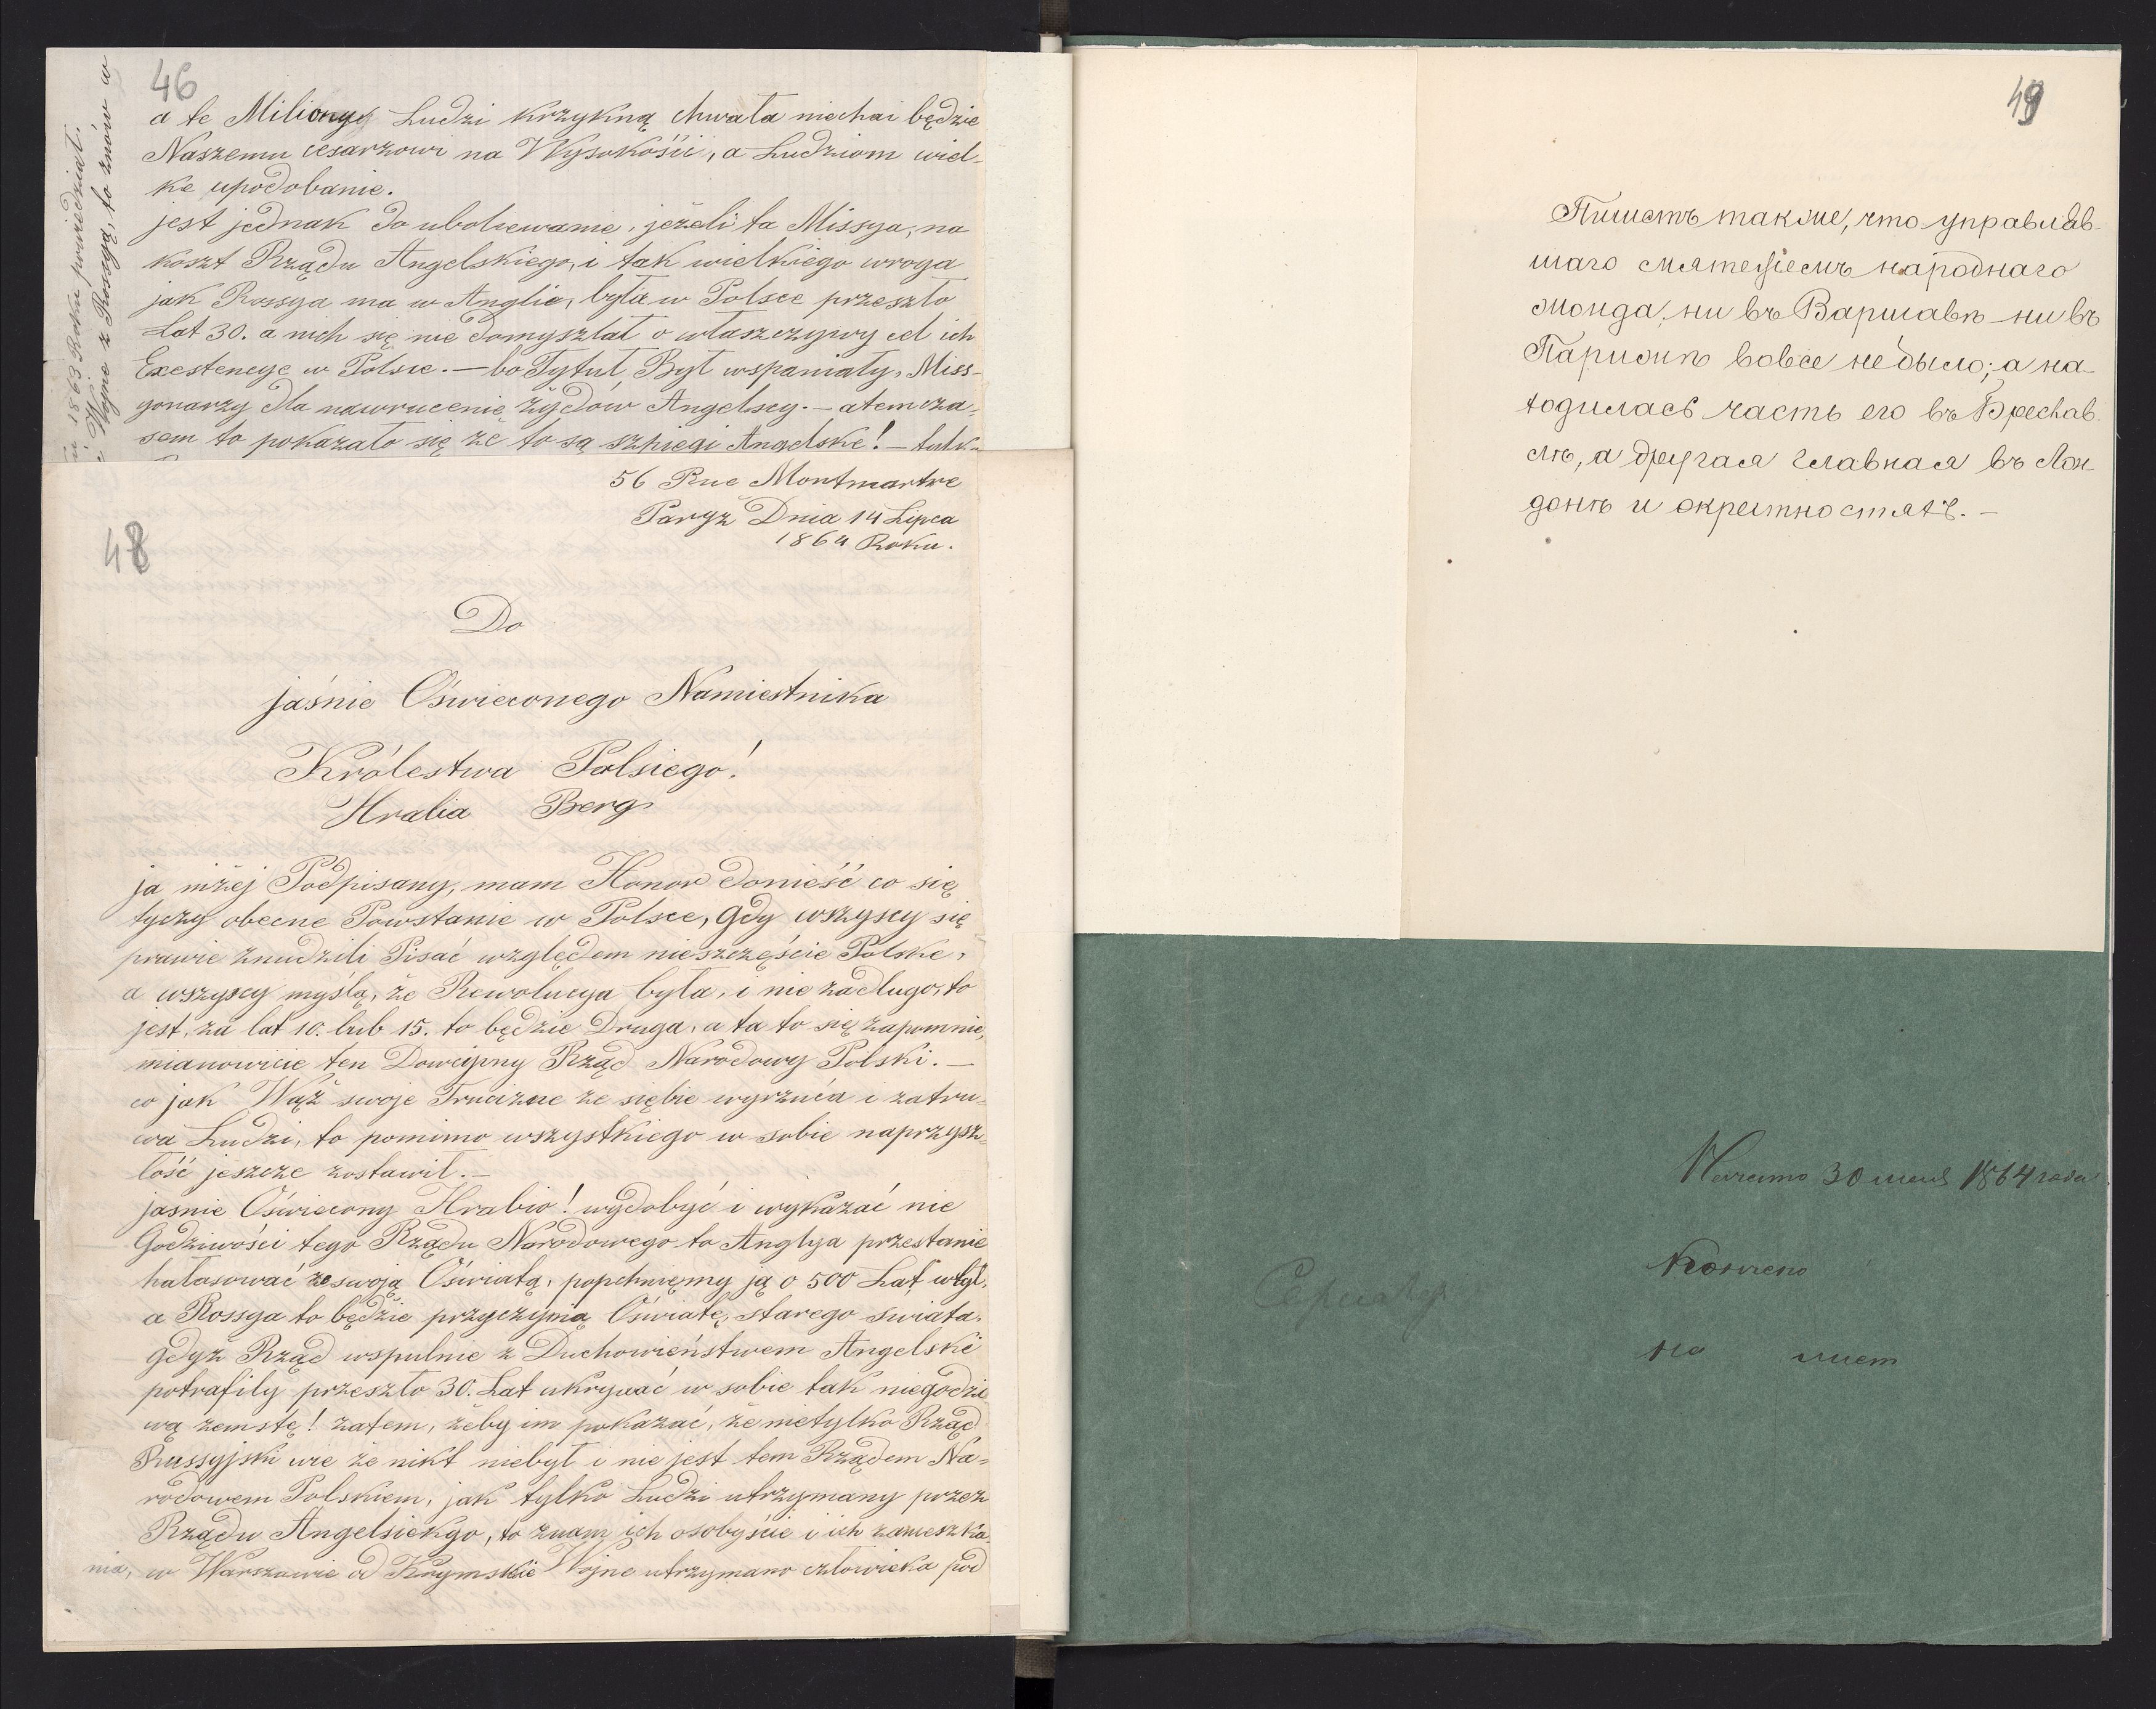 46
a te Miliony Ludzi krzykną chwała niechai będzie
Naszemu cesarzowi na Wysokośii, a Ludziom wiel-
ke upodobanie.
jest jednak do ubolewanie, jeżeli ta Missya, na
koszt Rządu Angelskiego, i tak wielkiego wroga
jak Rossya ma w Anglie, była w Polsce przeszło
Lat 30. a nich się nie domyształ o własczywy cel ich
Exestencye w Polsce. — bo Tytuł Był wspaniały, Miss-
yonarzy dla nawrucenie żydów Angelscy. — a tem cza-
sem to pokazało się że to są szpiegi Angelske! — tylko
1863 Roku powiedział.
Wojne z Rossyą, to znów w
48
56 Rue Montmartre
Paryż Dnia 14 Lipca
1864 Roku.
Do
jaśnie Oświeconego Namiestnika
Królestwa Polsiego!
Hrabia Berg
ja niżej Podpisany, mam Honor donieść co się
tyczy obecne Powstanie w Polsce, gdy wszyscy się
prawie znudzili Pisać względem nieszczęście Polske,
a wszyscy myślą, że Rewolucya była, i nie zadługo, to
jest, za lat 10. lub 15. to będzie Druga, a ta to się zapomnie,
mianowicie ten Dowcipny Rząd Narodowy Polski. —
co jak Wąż swoje Trucizne ze siębie wyrzuca i zatru-
wa Ludzi, to pomimo wszystkiego w sobie naprzysz-
łość jeszcze zostawił. —
jaśnie Oświecony Hrabio! wydobyć i wykazać nie
Godziwości tego Rządu Narodowego to Anglya przestanie
hałasować ze swoją Oświatą, popchnięmy ją o 500 Lat w tył,
a Rossya to będzie przyczyną Oświatę, starego swiata.
gdyż Rząd wspulnie z Duchowieństwem Angelskie
potrafily przeszło 30. Lat ukrywać w sobie tak niegodzi
wą zemstę! zatem, żeby im pokazać, że nietylko Rząd
Russyjski wie że nikt niebył i nie jest tem Rządem Na-
rodowem Polskiem, jak tylko Ludzi utrzymany przez
Rządu Angelsiekgo, to znam ich osobyście i ich zamieszka
nia, w Warszawie od Krymskie Wojne utrzymano człowieka pod
49
Пишетъ также, что управляв-
шаго мятежемъ народнаго
жонда, ни въ Варшавѣ ни въ
Парижѣ вовсе небыло; а на-
ходилась часть его въ Бреслав-
лѣ, а другая главная въ Лон-
донѣ и окрестностяхъ. —
Начато 30 июля 1864 года
Кончено
На лист